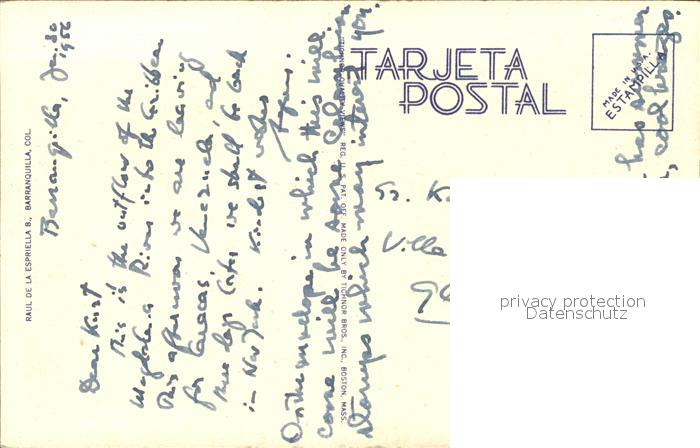 RAUL DE LA ESPRIELLA B., BARRANQUILLA, COL.
Barranquilla, Jan. 30
1956
Dear Kurt
This is the outflow of the
Magdalena River into the Caribbean.
This afternoon we are leaving
for Caracas, Venezuela, and
three days later we shall be back
in New York. Kindest wishes
Yours:
On the envelope in which this will
come will be some Colombian
stamps which may interest you.
"TICHNOR QUALITY VIEWS," REG. U. S. PAT. OFF. MADE ONLY BY TICHNOR BROS., INC., BOSTON, MASS.
TARJETA
POSTAL
MADE IN U.S.A.
ESTAMPILLA
has a summer
cool breezes.
Villa
privacy protection
Datenschutz